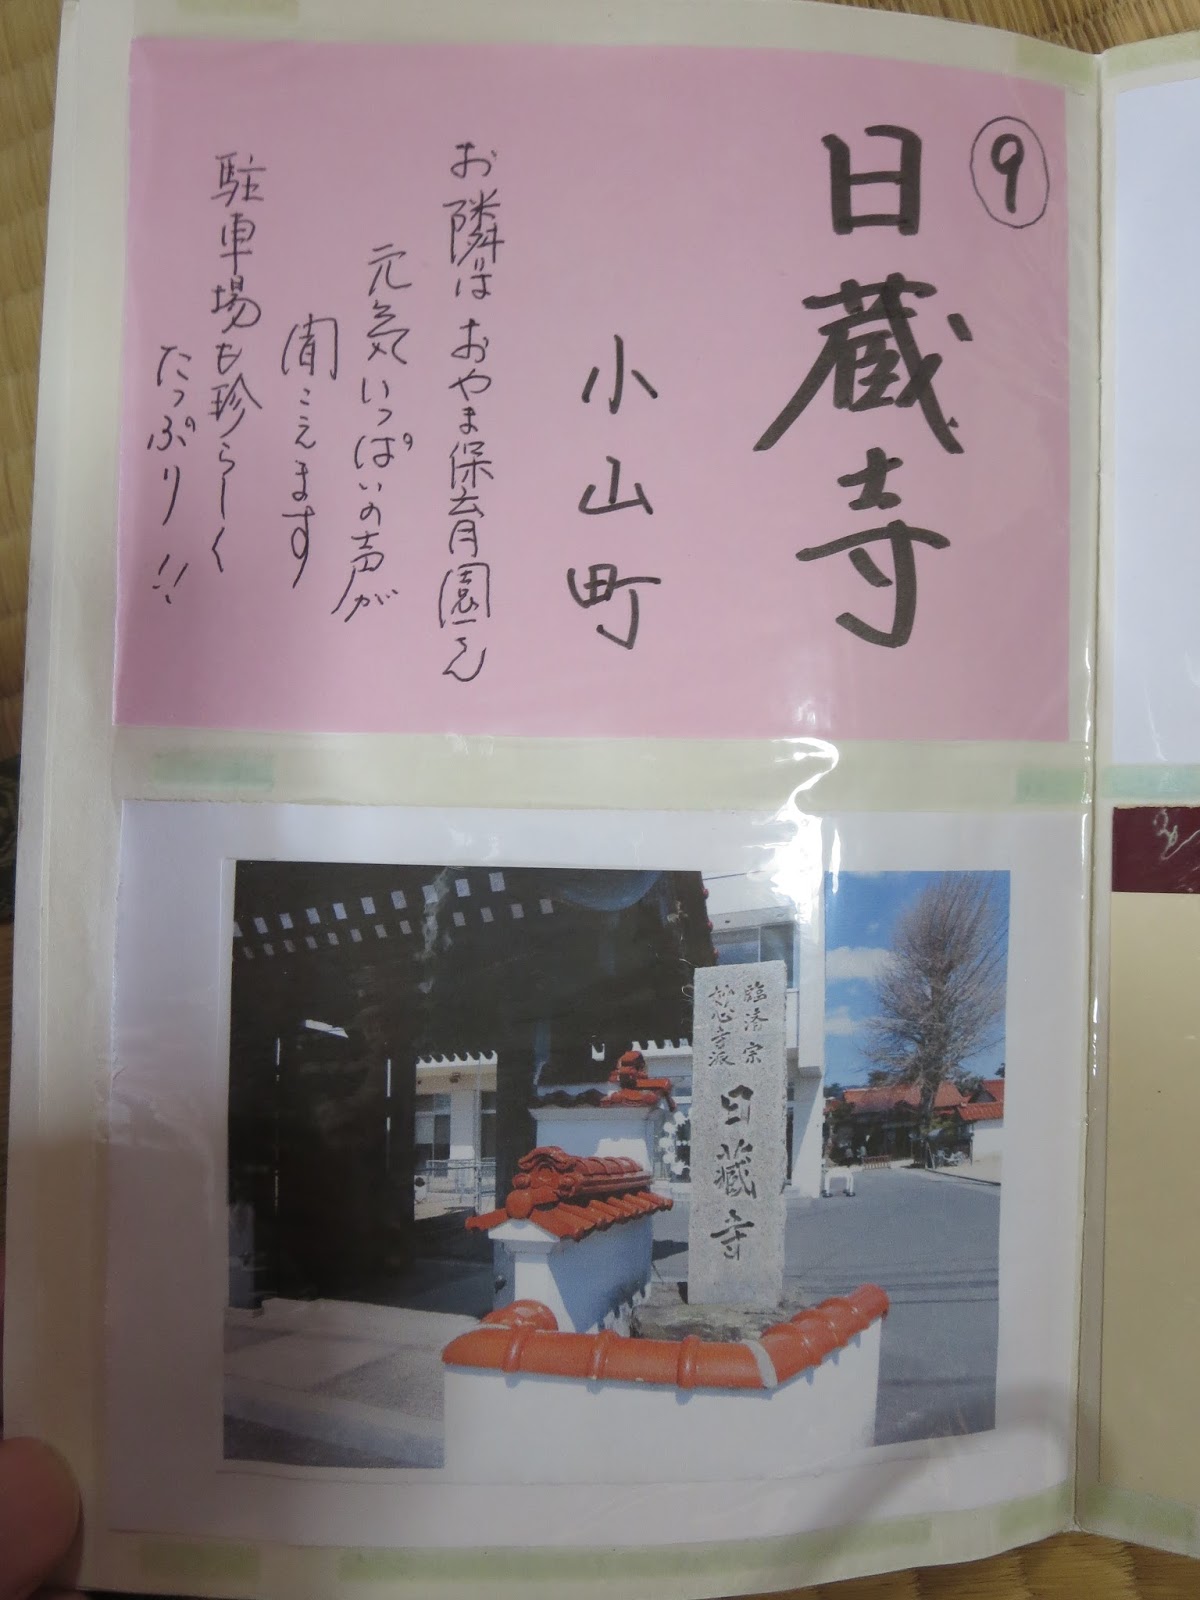 ⑨
日蔵寺
小山町
お隣はおやま保育園さん
元気いっぱいの声が
聞こえます
駐車場も珍らしく
たっぷり!!
臨済宗
妙心寺派
日蔵寺